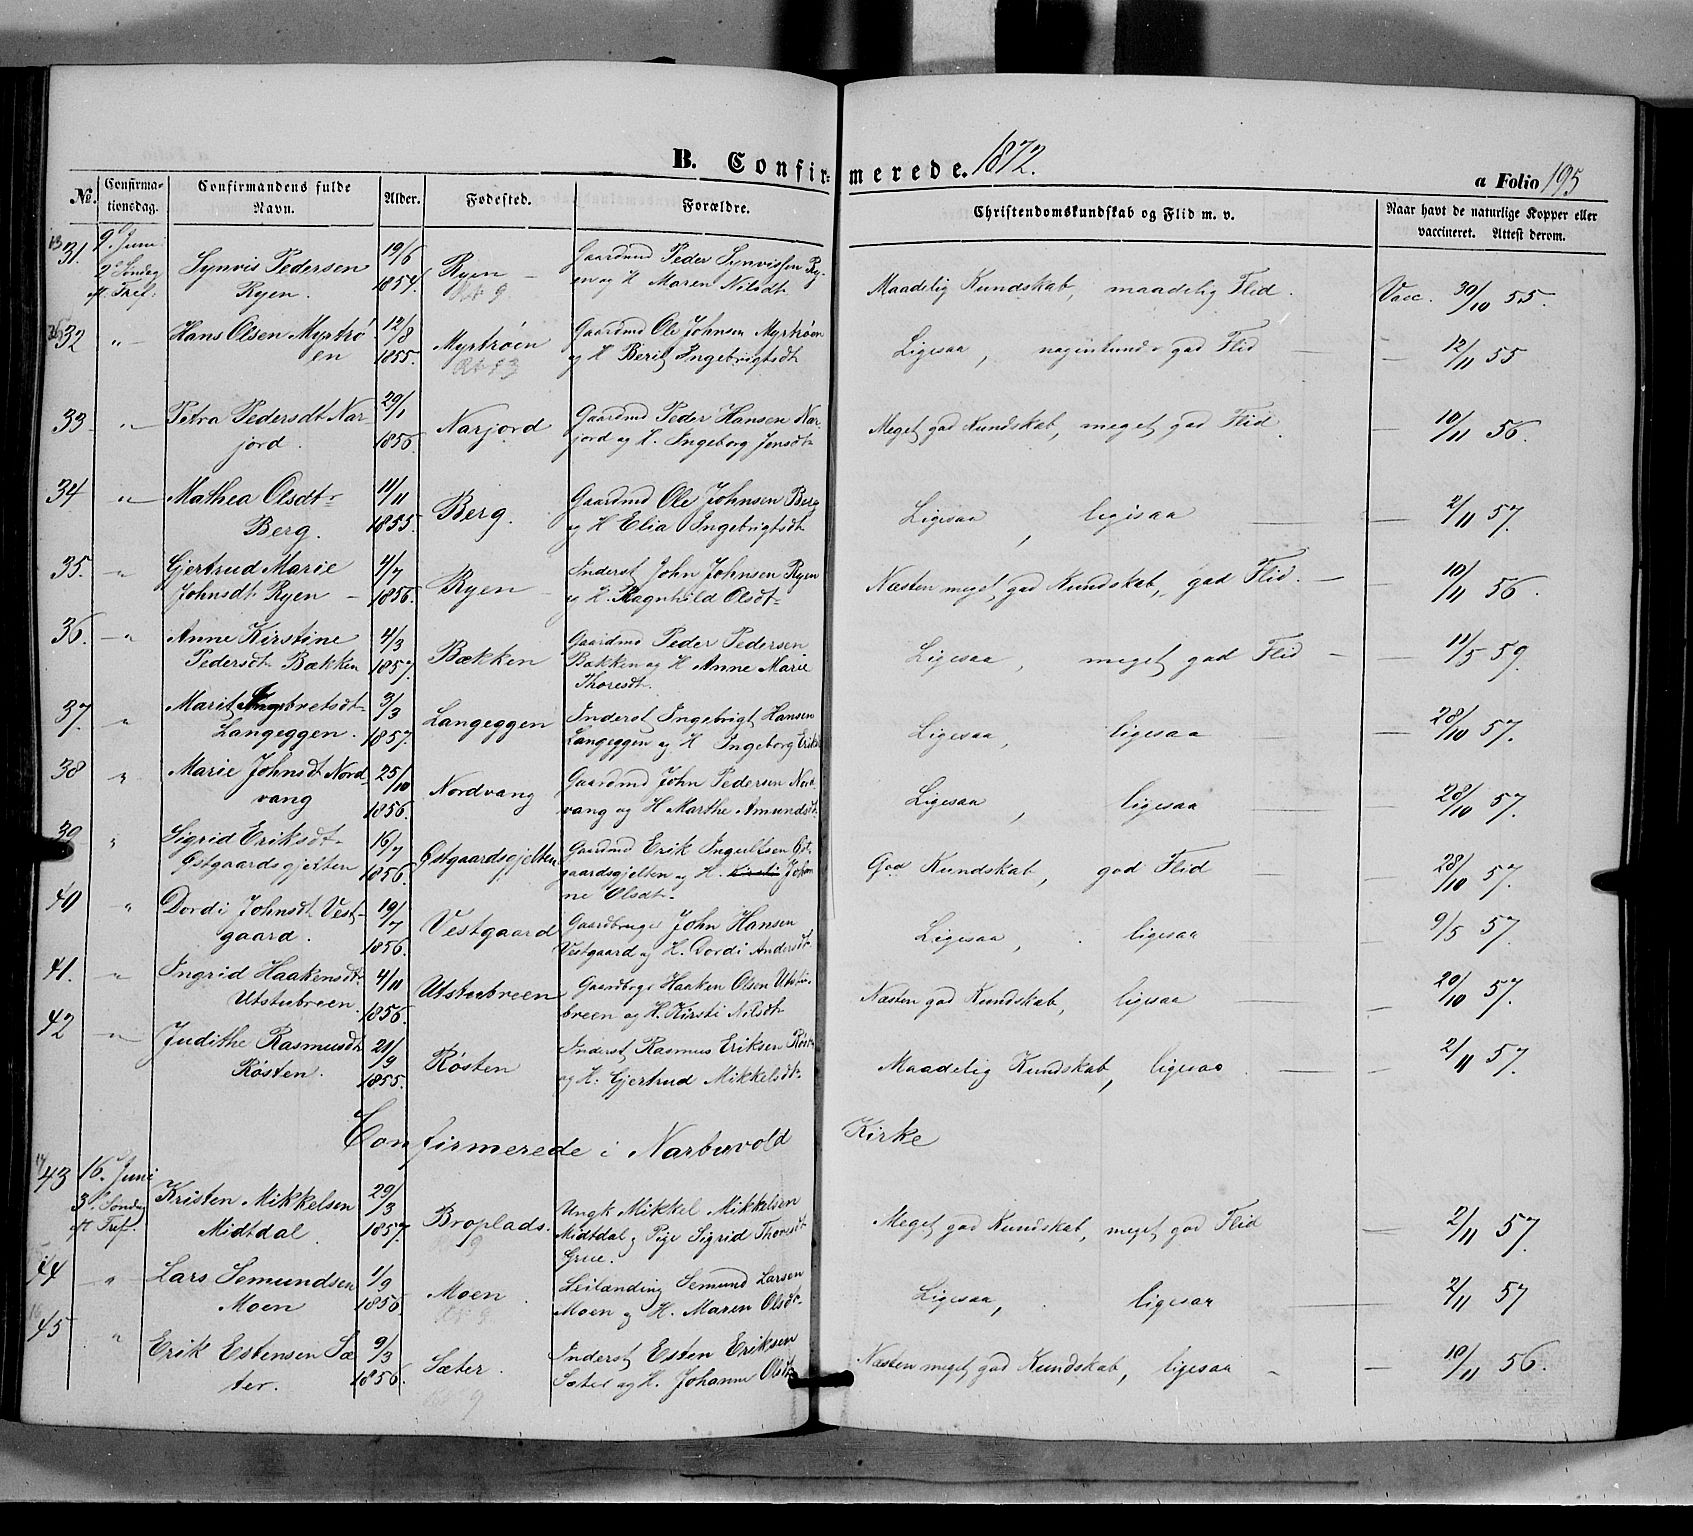 B. Confirmerede. 1872.
a Folio 195
No. Confirmationsdag. Confirmandens fulde Navn. Alder. Fødested. Forældre. Christendomskundskab og Flid m. v. Naar havt de naturlige Kopper eller vaccineret. Attest derom.
13
31. 9. Juni Synvis Pedersen 19/6 Ryen – Gaardmd Peder Synvissen Ry-
2den Søndag Ryen. 1854. en og H Maren Nilsdt. Maadelig Kundskab, maadelig Flid. Vacc. 30/10 55.
ft. Tref.
32 " Hans Olsen Myrtrø- 12/8 Myrtrøen Gaardmd Ole Johnsen Myrtrøen
en 1855. og H Berit Ingebrigtsdt. Ligesaa, nogenlunde god Flid — 12/11 55
33 " Petra Pedersdt Nar- 29/1 Narjord Gaardmd Peder Hansen Nar-
jord. 1856. jord og H. Ingeborg Jonsdt. Meget god Kundskab, meget god Flid. — 10/11 56.
34 " Mathea Olsdt. 11/11 Berg. Gaardmd Ole Johnsen Berg
Berg. 1855. og H Elia Ingebrigtsdt. Ligesaa, ligesaa — 2/11 57.
35. " Gjertrud Marie 4/7 Ryen – Inderst John Johnsen Ryen
Johnsdt. Ryen – 1856. og H. Ragnhild Olsdt. Næsten meget god Kundskab, god Flid. — 10/11 56.
36. " Anne Kirstine 4/3 Bækken Gaardmd Peder Pedersen
Pedersdt. Bækken 1857. Bækken og H Anne Marie Ligesaa, meget god Flid — 11/5 59.
Thoresdt.
37. " Marit Ingebretsdt. 3/3 Langeggen Inderst Ingebrigt Hansen
Langeggen. 1857. Langeggen og H Ingeborg Eriks Ligesaa, ligesaa — 28/10 57.
38 " Marie Johnsdt Nord- 25/10 Nordvang Gaardmd John Pedersen Nord-
vang 1856. vang og H Marthe Amundsdt. Ligesaa, ligesaa 28/10 57.
39 " Sigrid Eriksdt. 16/7 Østgaardsgjelten Gaardmd Erik Ingulfsen Øst-
Østgaardsgjelten 1856. gaardsgjelten og H. Kirsti Johan God Kundskab, god Flid — 28/10 57.
ne Olsdt.
40 " Dordi Johnsdt. Vest- 19/7 Vestgaard Gaardbruge John Hansen
gaard. 1856. Vestgaard og H. Dordi Andersdt. Ligesaa, ligesaa — 9/5 57.
41. " Ingrid Haakensdt. 4/11 Utstubreen Gaardbrge Haaken Olsen Utstu-
Utstubreen. 1856. breen og H. Kirsti Nilsdt. Næsten god Kundskab, ligesaa — 20/10 57.
42 " Judithe Rasmusdt. 21/9 Røsten Inderst Rasmus Eriksen Røst
Røsten. 1855. og H. Gjertrud Mikkelsdt. Maadelig Kundskab, ligesaa — 2/11 57.
Confirmerede i Narbuvold Kirke
43 16. Juni Kristen Mikkelsen 29/3 Broplads. Ungk Mikkel Mikkelsen
3d. Søndag Midtdal. 1857. Midtdal og Pige Sigrid Thoresdt. Meget god Kundskab, meget god Flid — 2/11 57.
ft. Tref. Grue.
44 " Lars Semundsen 1/9 Moen. Leilænding Semund Larsen
Moen 1856 Moen og H. Maren Olsdt. Ligesaa, ligesaa — 2/11 57
45 " Erik Estensen Sæ- 9/3 Sæter. Inderst Esten Eriksen
ter. 1856. Sæter og H. Johanne Olsdt. Næsten meget god Kundskab, ligesaa – 10/11 56.